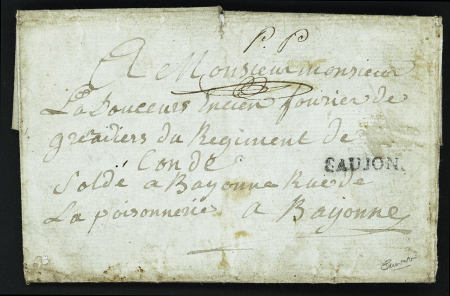 P. P
A Monsieur monsieur
La douceurs Encien fourier de
grenadiers du Regiment de
Condé
SAUJON.
Soldé a Bayonne Rue de
La poisonnerie a Bayonne